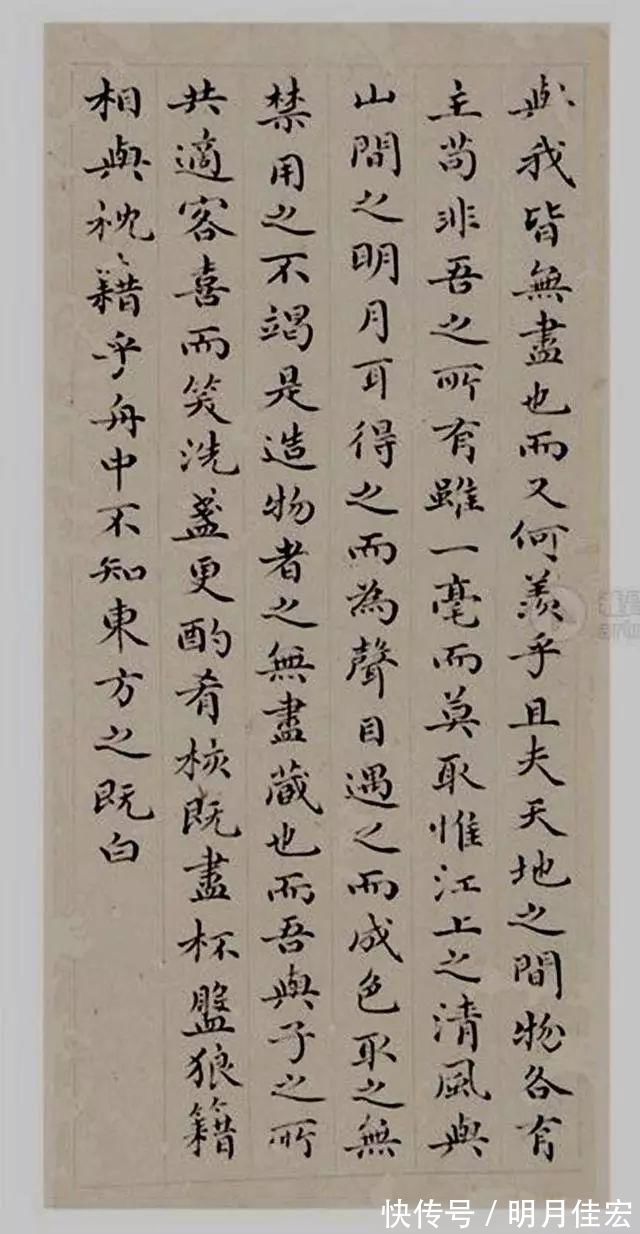 與我皆無盡也而又何羨乎且夫天地之間物各有
主苟非吾之所有雖一毫而莫取惟江上之清風與
山間之明月耳得之而為聲目遇之而成色取之無
禁用之不竭是造物者之無盡藏也而吾與子之所
共適客喜而笑洗盞更酌肴核既盡杯盤狼籍
相與枕籍乎舟中不知東方之既白
快传号/明月佳宏